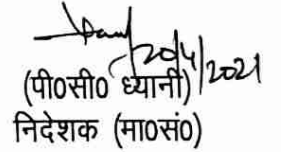 20/4/2021
(पी०सी० ध्यानी)
निदेशक (मा०सं०)